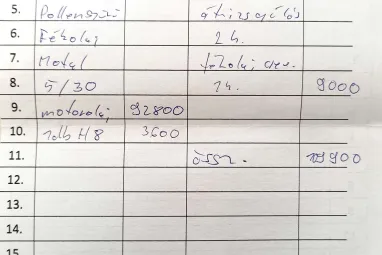 5. Pollenszűrő átvizsgálás
6. Fékolaj 2 h.
7. Motul fékolaj csere
8. 5/30 1 h. 9000
9. motorolaj 92800
10. H8 3600
11. össz.
12.
13.
14.
15.